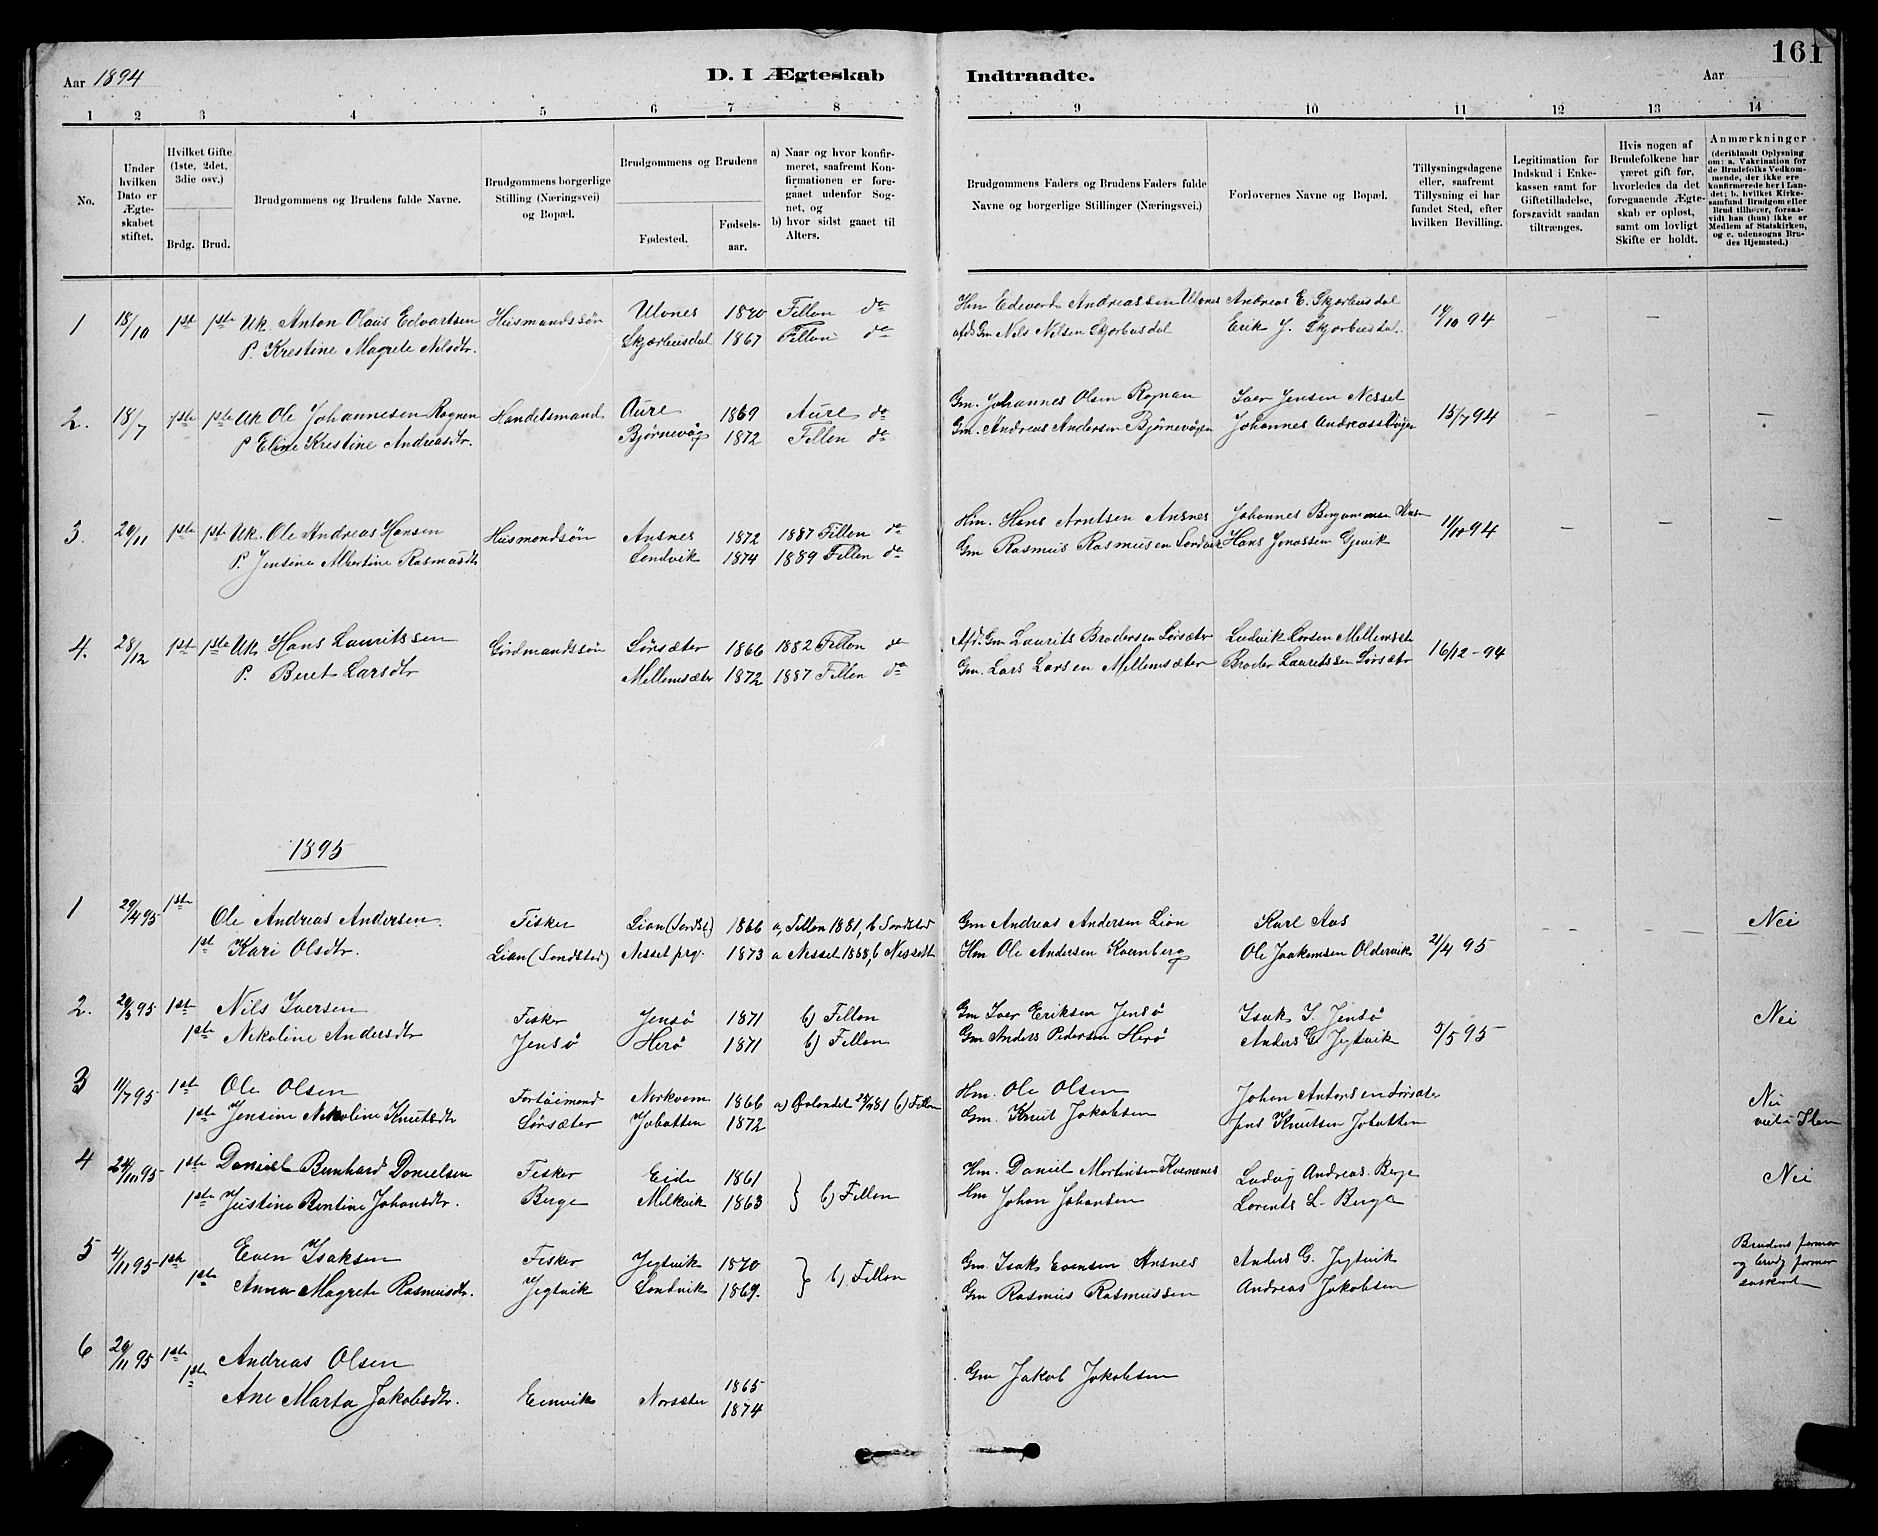 161
Aar 1894
D. I Ægteskab Indtraadte.
Aar
1 2 3 4 5 6 7 8 9 10 11 12 13 14
No.
Under hvilken Dato er Ægteskabet stiftet.
Hvilket Gifte (1ste, 2det, 3die osv.)
Brdg. Brud.
Brudgommens og Brudens fulde Navne.
Brudgommens borgerlige Stilling (Næringsvei) og Bopæl.
Brudgommens og Brudens
Fødested.
Fødselsaar.
a) Naar og hvor konfirmeret, saafremt Konfirmationen er foregaaet udenfor Sognet, og
b) hvor sidst gaaet til Alters.
Brudgommens Faders og Brudens Faders fulde Navne og borgerlige Stillinger (Næringsvei.)
Forlovernes Navne og Bopæl.
Tillysningsdagene eller, saafremt Tillysning ei har fundet Sted, efter hvilken Bevilling.
Legitimation for Indskud i Enkekassen samt for Giftetilladelse, forszavidt saadan tiltrænges.
Hvis nogen af Brudefolkene har været gift før, hvorledes da det foregaaende Ægteskab er opløst, samt om lovligt Skifte er holdt.
Anmærkninger (deriblandt Oplysning om: a. Vakcination for de Brudefolks Vedkommende, der ikke ere konfirmerede her i Landet; b. hvilket Kirkesamfund Brudgom eller Brud tilhører, forsaavidt han (hun) ikke er Medlem af Statskirken, og c. udensogns Brudes Hjemsted.)
1 18/10 1st 1ste Uk. Anton Olaus Edvartsen Husmandssøn Ulvnes 1870 Fillan do Hm Edevard Andreassen Ulvnes Andreas E. Skjærbusdal 14/10 94 – –
P. Krestine Magrete Nilsdtr. Skjærbusdal 1867 Fillan do afd. Gm Nils Nilsen Skjærbusdal Erik J. Skjærbusdal.
2. 18/7 1ste 1ste Uk Ole Johannesen Ragnen Handelsmand Aure 1869 Aure do Gm. Johannes Olsen Iver Jensen Nesset 15/7 94 – – –
P Eline Krestine Andreasdtr. Bjørnevåg 1872 Fillan do Gm. Andreas Andersen Bjørnevågen Johannes
3. 29/11 1ste 1st Uk. Ole Andreas Hansen Husmandsøn Ansnes 1872 1887 Fillan do Hm. Hans Arntsen Ansnes Johannes 11/10 94 – – –
P. Jensine Albertine Rasmusdtr Sandvik 1874 1889 Fillan do Gm Rasmus Rasmusen Hans Jonassen Gjevik
4. 28/12 1st 1ste Uk. Hans Lauritssen Gårdmandssøn Sørsæter 1866 1882 Fillan do Afd. Gm Laurits Brodersen Sørsæter Ludvik Larsen 16/12-94
P. Beret Larsdtr Mellemsæter 1872 1887 Fillan do Gm. Lars Larsen Mellemsæter Broder Lauritssen Sørsætr
1895
1 29/4 95 1ste Ole Andreas Andersen. Fisker Lian (Sandst.) 1866 a, Fillan 1881, b Sandstad Gm Andreas Andersen Lian Karl Aas Nei
1st Kari Olsdtr. Lian (Sandstad) Nesset prg. 1873 a Nesset 1868, b Nesset Hm Ole Andersen Kvernberg Ole Joakimsen Oldervik 21/4 95 – – –
2. 1ste Nils Iversen Fisker Jensø 1871 b) Fillan Gm Iver Eriksen Jensø Isak I. Jensø Nei
1ste Nikoline Andersdtr Jensø Herø 1871 b) Fillan Gm Anders Pedersen Herø Anders G Jegtvik 5/5 95
3 11/7 95 1st Ole Olsen 1866 Hm. Ole Olsen Johan Antonsen Sørsæter
1ste Jensine Nikoline Knutsdtr Sørsæter 1872 Gm. Knut Jakobsen Jens Knutsen
4 1ste Daniel Bernhard Danielsen Fisker Eide 1861 } b) Fillan Hm. Daniel Martinsen Kvernnes Ludvig Andreas. Berge Nei
1ste Justine Bentine Johansdtr. Berge Melkvik 1863 Hm Johan Johansen Lorents L. Berge
5 4/11 95 1ste Even Isaksen Fisker Jegtvik 1870 } b) Fillan Gm. Isak Evensen Ansnes Anders G. Jegtvik
1ste Anna Magrete Rasmusdtr. Jegtvik Sandvik 1869. Gm Rasmus Rasmussen Andreas Jakobsen
6 29/11 95 1ste Andreas Olsen 1865 Gm Jakob Jakobsen
1ste Ane Marta Jakobsdtr. Norsæter 1874